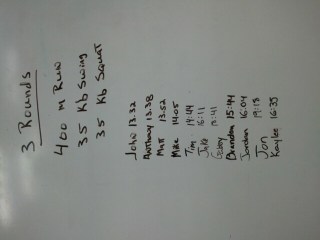 3 Rounds
400 m Run
35 Kb Swing
35 Kb Squat
John 13.32
Anthony 13.38
Matt 13.52
Mike 14.05
Tim 14:44
Jake 16:11
15:41
Brendan 15:44
Jordan 16:04
Jon 19:18
Kaylee 16:35